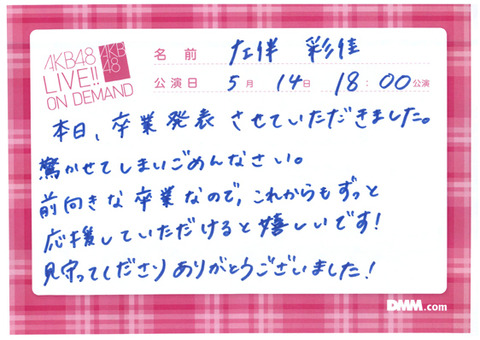 AKB48
LIVE!!
ON DEMAND
AKB
48
名 前 左伴 彩佳
公演日 5月 14日 18:00公演
本日、卒業発表させていただきました。
驚かせてしまいごめんなさい。
前向きな卒業なので、これからもずっと
応援していただけると嬉しいです!
見守ってくださりありがとうございました!
DMM.com